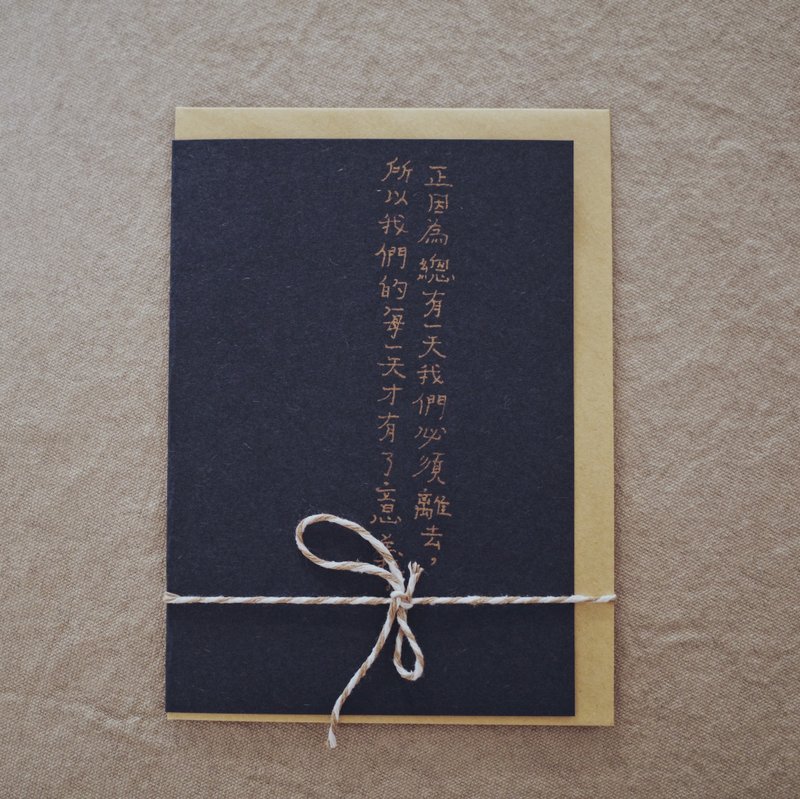 正因為總有一天我們必須離去，
所以我們的每一天才有了意義